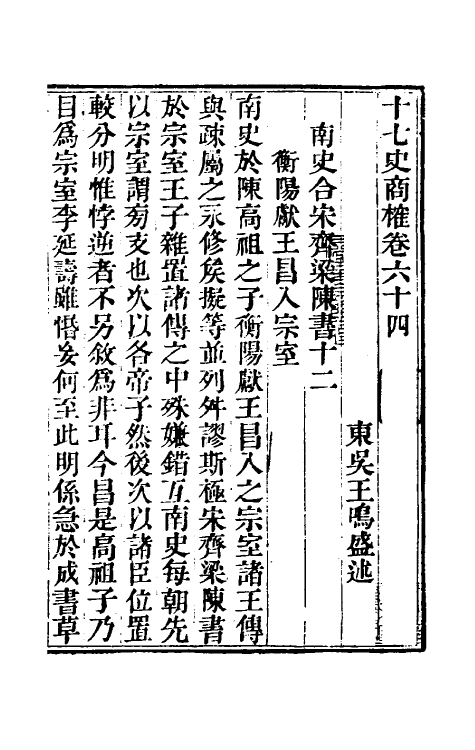 十七史商榷卷六十四
東吳王鳴盛述
南史合宋齊梁陳書十二
衡陽獻王昌入宗室
南史於陳高祖之子衡陽獻王昌入之宗室諸王傳
與疎屬之永修矦擬等並列舛謬斯極宋齊梁陳書
於宗室王子雜置諸傳之中殊嫌錯互南史每朝先
以宗室謂匇支也次以各帝子然後次以諸臣位置
較分明惟悖逆者不另敘爲非耳今昌是高祖子乃
目爲宗室李延壽雖㥶妄何至此明係急於成書草